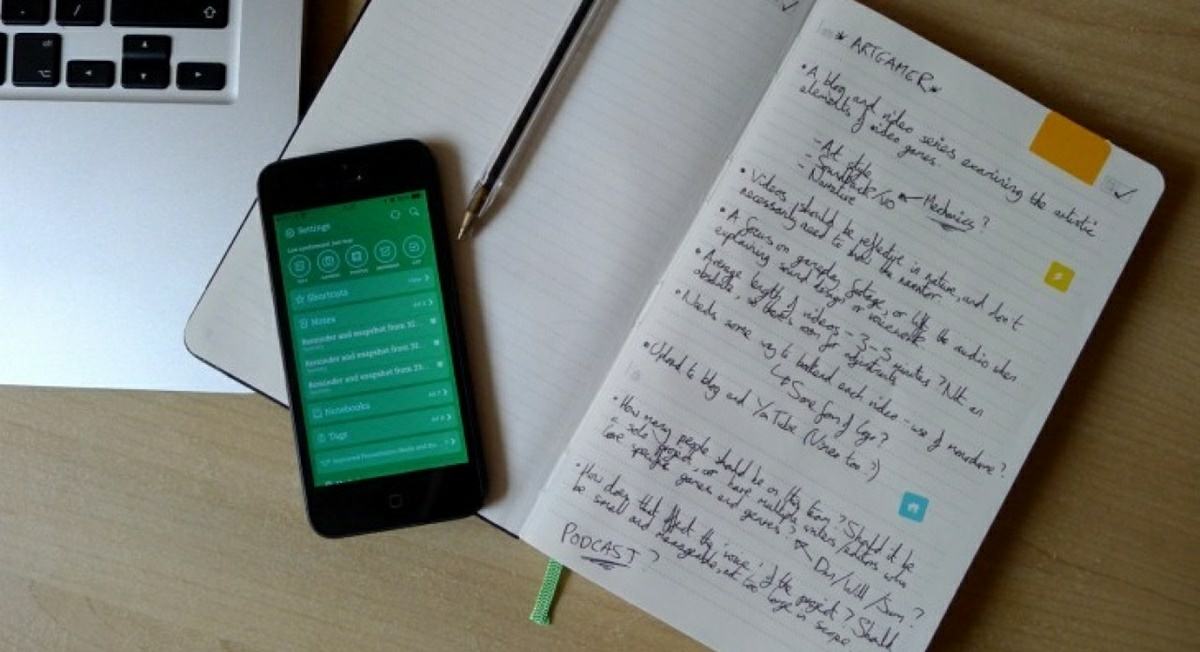 Settings
Shortcuts
Notes
Reminder and snapshot from 31...
Reminder and snapshot from 31...
Reminder and snapshot from 23...
Notebooks
Tags
* ARTGAMER *
• A blog and video series examining the artistic
elements of video games.
- Art style
- Soundtrack/VO Mechanics?
- Narrative
• Videos should be reflective in nature, and don't
necessarily need to have the narrator.
• A focus on gameplay footage, or lift the audio when
explaining sound design or voicework
• Average length of videos - 3-5 minutes? Not an
obstacle, so there's room for adjustments
• Needs some way to bookend each video - use of monochrome?
↳ Some form of logo?
• Upload to blog and YouTube (Vimeo too?)
• How many people should be on this team? Should it be
a solo project, or have multiple writers/editors who
love specific games and genres? Dan/Will/Sam?
• How does that affect the voice of the project? Should
be small and manageable, not too large in scope
PODCAST?